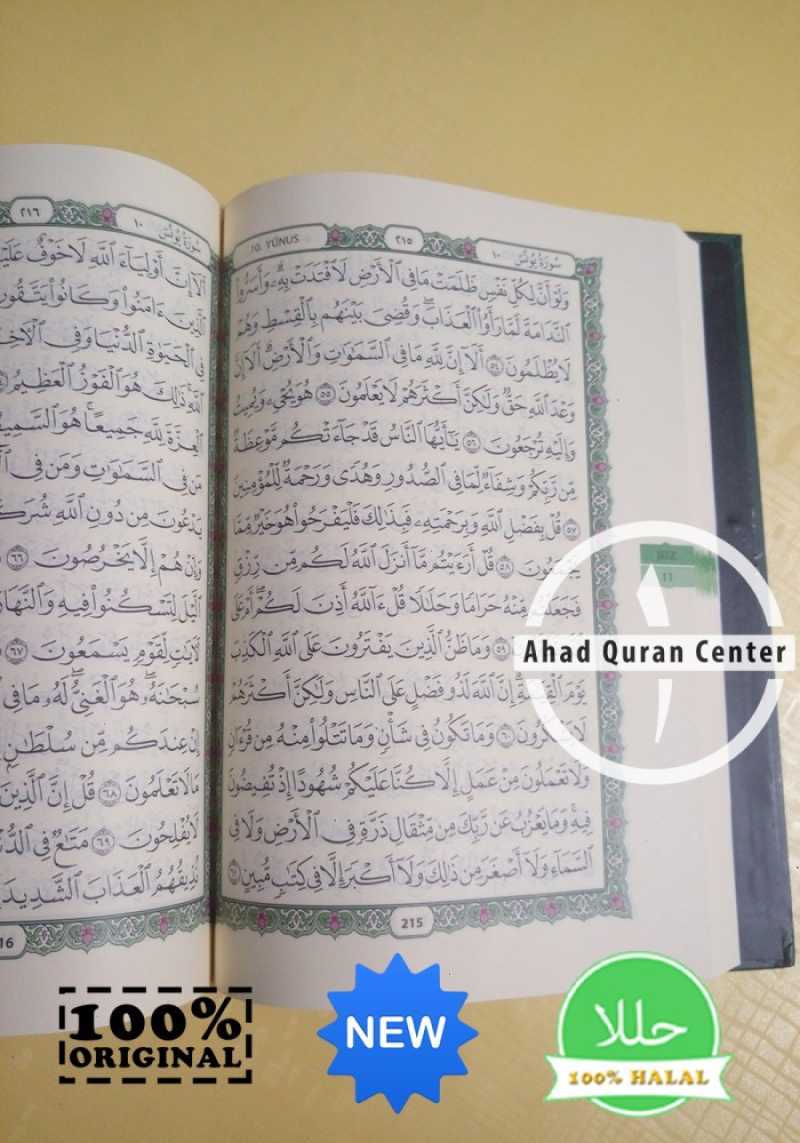 ٢١٥
سُورَةُ يُونُسَ ١٠
10. YŪNUS
وَلَوْ أَنَّ لِكُلِّ نَفْسٍ ظَلَمَتْ مَا فِي ٱلْأَرْضِ لَٱفْتَدَتْ بِهِۦ ۗ وَأَسَرُّوا۟
ٱلنَّدَامَةَ لَمَّا رَأَوُا۟ ٱلْعَذَابَ ۖ وَقُضِيَ بَيْنَهُم بِٱلْقِسْطِ وَهُمْ
لَا يُظْلَمُونَ ٥٤ أَلَآ إِنَّ لِلَّهِ مَا فِي ٱلسَّمَٰوَٰتِ وَٱلْأَرْضِ ۗ أَلَآ إِنَّ
وَعْدَ ٱللَّهِ حَقٌّ وَلَٰكِنَّ أَكْثَرَهُمْ لَا يَعْلَمُونَ ٥٥ هُوَ يُحْيِۦ وَيُمِيتُ
وَإِلَيْهِ تُرْجَعُونَ ٥٦ يَٰٓأَيُّهَا ٱلنَّاسُ قَدْ جَآءَتْكُم مَّوْعِظَةٌ
مِّن رَّبِّكُمْ وَشِفَآءٌ لِّمَا فِي ٱلصُّدُورِ وَهُدًى وَرَحْمَةٌ لِّلْمُؤْمِنِينَ
٥٧ قُلْ بِفَضْلِ ٱللَّهِ وَبِرَحْمَتِهِۦ فَبِذَٰلِكَ فَلْيَفْرَحُوا۟ هُوَ خَيْرٌ مِّمَّا
يَجْمَعُونَ ٥٨ قُلْ أَرَءَيْتُم مَّآ أَنزَلَ ٱللَّهُ لَكُم مِّن رِّزْقٍ
فَجَعَلْتُم مِّنْهُ حَرَامًا وَحَلَٰلًا قُلْ ءَآللَّهُ أَذِنَ لَكُمْ ۖ أَمْ عَلَى
٥٩ وَمَا ظَنُّ ٱلَّذِينَ يَفْتَرُونَ عَلَى ٱللَّهِ ٱلْكَذِبَ
يَوْمَ ٱلْقِيَٰمَةِ ۗ إِنَّ ٱللَّهَ لَذُو فَضْلٍ عَلَى ٱلنَّاسِ وَلَٰكِنَّ أَكْثَرَهُمْ
لَا يَشْكُرُونَ ٦٠ وَمَا تَكُونُ فِي شَأْنٍ وَمَا تَتْلُوا۟ مِنْهُ مِن قُرْءَانٍ
وَلَا تَعْمَلُونَ مِنْ عَمَلٍ إِلَّا كُنَّا عَلَيْكُمْ شُهُودًا إِذْ تُفِيضُونَ
فِيهِ ۚ وَمَا يَعْزُبُ عَن رَّبِّكَ مِن مِّثْقَالِ ذَرَّةٍ فِي ٱلْأَرْضِ وَلَا فِي
ٱلسَّمَآءِ وَلَآ أَصْغَرَ مِن ذَٰلِكَ وَلَآ أَكْبَرَ إِلَّا فِي كِتَٰبٍ مُّبِينٍ ٦١
215
JUZ
11
سُورَةُ يُونُسَ ١٠
٢١٦
أَلَآ إِنَّ أَوْلِيَآءَ ٱللَّهِ لَا خَوْفٌ
ٱلَّذِينَ ءَامَنُوا۟ وَكَانُوا۟ يَتَّقُونَ
فِي ٱلْحَيَوٰةِ ٱلدُّنْيَا وَفِي
ٱللَّهِ ۚ ذَٰلِكَ هُوَ ٱلْفَوْزُ ٱلْعَظِيمُ
ٱلْعِزَّةَ لِلَّهِ جَمِيعًا ۚ هُوَ
مَن فِي ٱلسَّمَٰوَٰتِ وَمَن فِي
يَدْعُونَ مِن دُونِ ٱللَّهِ
وَإِنْ هُمْ إِلَّا يَخْرُصُونَ ٦٦
ٱلَّيْلَ لِتَسْكُنُوا۟ فِيهِ وَٱلنَّهَارَ
لَأٓيَٰتٍ لِّقَوْمٍ يَسْمَعُونَ ٦٧
سُبْحَٰنَهُۥ ۖ هُوَ ٱلْغَنِيُّ ۖ لَهُۥ مَا فِي
إِنْ عِندَكُم مِّن سُلْطَٰنٍۭ
مَا لَا تَعْلَمُونَ ٦٨ قُلْ إِنَّ ٱلَّذِينَ
لَا يُفْلِحُونَ ٦٩ مَتَٰعٌ فِي
نُذِيقُهُمُ ٱلْعَذَابَ ٱلشَّدِيدَ
16
Ahad Quran Center
100%
ORIGINAL
NEW
حلال
100% HALAL